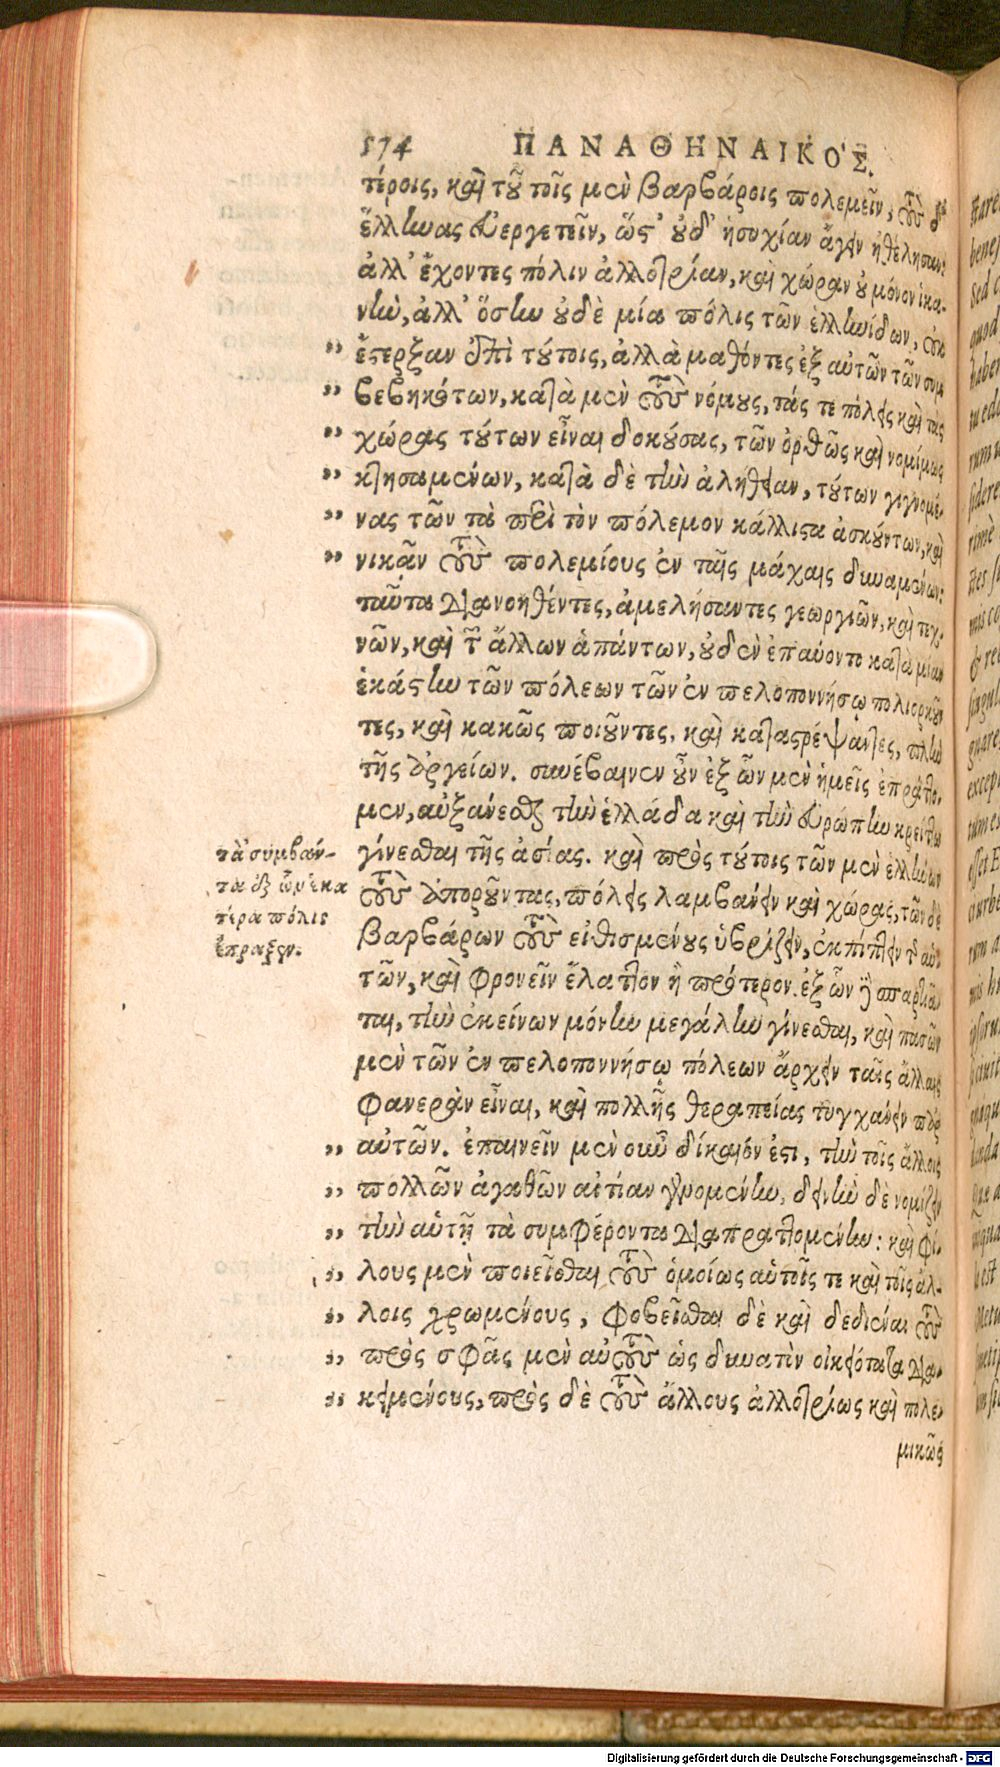 574 ΠΑΝΑΘΗΝΑΙΚΟ'Σ.
τέροις, καὶ τοῦ τοῖς μὲν βαρβάροις πολεμεῖν, τοὺς δ'
ἕλληνας εὐεργετεῖν, ὥς' οὐδ' ἡσυχίαν ἄγειν ἠθέλησαν:
ἀλλ' ἔχοντες πόλιν ἀλλοτρίαν, καὶ χώραν οὐ μόνον ἱκα-
νὴν, ἀλλ' ὅσην οὐδὲ μία πόλις τῶν ἑλληνίδων, οὐκ
" ἔςερξαν ἐπὶ τούτοις, ἀλλὰ μαθόντες ἐξ αὐτῶν τῶν συμ
" βεβηκότων, κατὰ μὲν τοὺς νόμους, τάς τε πόλεις καὶ τὰς
" χώρας τούτων εἶναι δοκούσας, τῶν ὀρθῶς καὶ νομίμως
" κτησαμένων, κατὰ δὲ τὴν ἀλήθειαν, τούτων γιγνομέ-
" νας τῶν τὰ περὶ τὸν πόλεμον κάλλιςα ἀσκούντων, καὶ
" νικᾷν τοὺς πολεμίους ἐν ταῖς μάχαις δυναμένων:
ταῦτα διανοηθέντες, ἀμελήσαντες γεωργιῶν, καὶ τεχ-
νῶν, καὶ τῶν ἄλλων ἁπάντων, οὐδὲν ἐπαύοντο κατὰ μίαν
ἑκάςην τῶν πόλεων τῶν ἐν πελοποννήσῳ πολιορκοῦν
τες, καὶ κακῶς ποιοῦντες, καὶ κατας ρέψαντες, πλὴν
τῆς ἀργείων. συνέβαινεν οὖν ἐξ ὧν μὲν ἡμεῖς ἐπράττο-
μεν, αὐξάνεσθαι τὴν ἑλλάδα καὶ τὴν εὐρώπην κρείττω
γίνεσθαι τῆς ἀσίας. καὶ πρὸς τούτοις τῶν μὲν ἑλλήνων
τοὺς ἀποροῦντας, πόλεις λαμβάνειν καὶ χώρας, τῶν δὲ
βαρβάρων τοὺς εἰθισμένους ὑβρίζειν, ἐκπίπτειν τῆς αὑ-
τῶν, καὶ φρονεῖν ἔλαττον ἢ πρότερον. ἐξ ὧν δὲ σπαρτιᾶ
ται, τὴν ἐκείνων μόνην μεγάλην γίνεσθαι, καὶ πασῶν
μὲν τῶν ἐν πελοποννήσῳ πόλεων ἄρχειν ταῖς ἄλλαις
φανερὰν εἶναι, καὶ πολλῆς θεραπείας τυγχάνειν παρ'
" αὐτῶν. ἐπαινεῖν μὲν οὖν δίκαιόν ἐςι, τὴν τοῖς ἄλλοις
" πολλῶν ἀγαθῶν αἰτίαν γενομένην, δεινὴν δὲ νομίζειν
" τὴν αὑτῇ τὰ συμφέροντα διαπραττομένην: καὶ φί-
" λους μὲν ποιεῖσθαι τοὺς ὁμοίως αὑτοῖς τε καὶ τοῖς ἄλ-
" λοις χρωμένους, φοβεῖσθαι δὲ καὶ δεδιέναι τοὺς
" πρὸς σφᾶς μὲν αὐτοὺς ὡς δυνατὸν οἰκειότατα δια-
" κειμένους, πρὸς δὲ τοὺς ἄλλους ἀλλοτρίως καὶ πολε-
μικῶς
τὰ συμβάν-
τα ἐξ ὧν ἑκα
τέρα πόλις
ἔπραξεν.
Digitalisierung gefördert durch die Deutsche Forschungsgemeinschaft - DFG